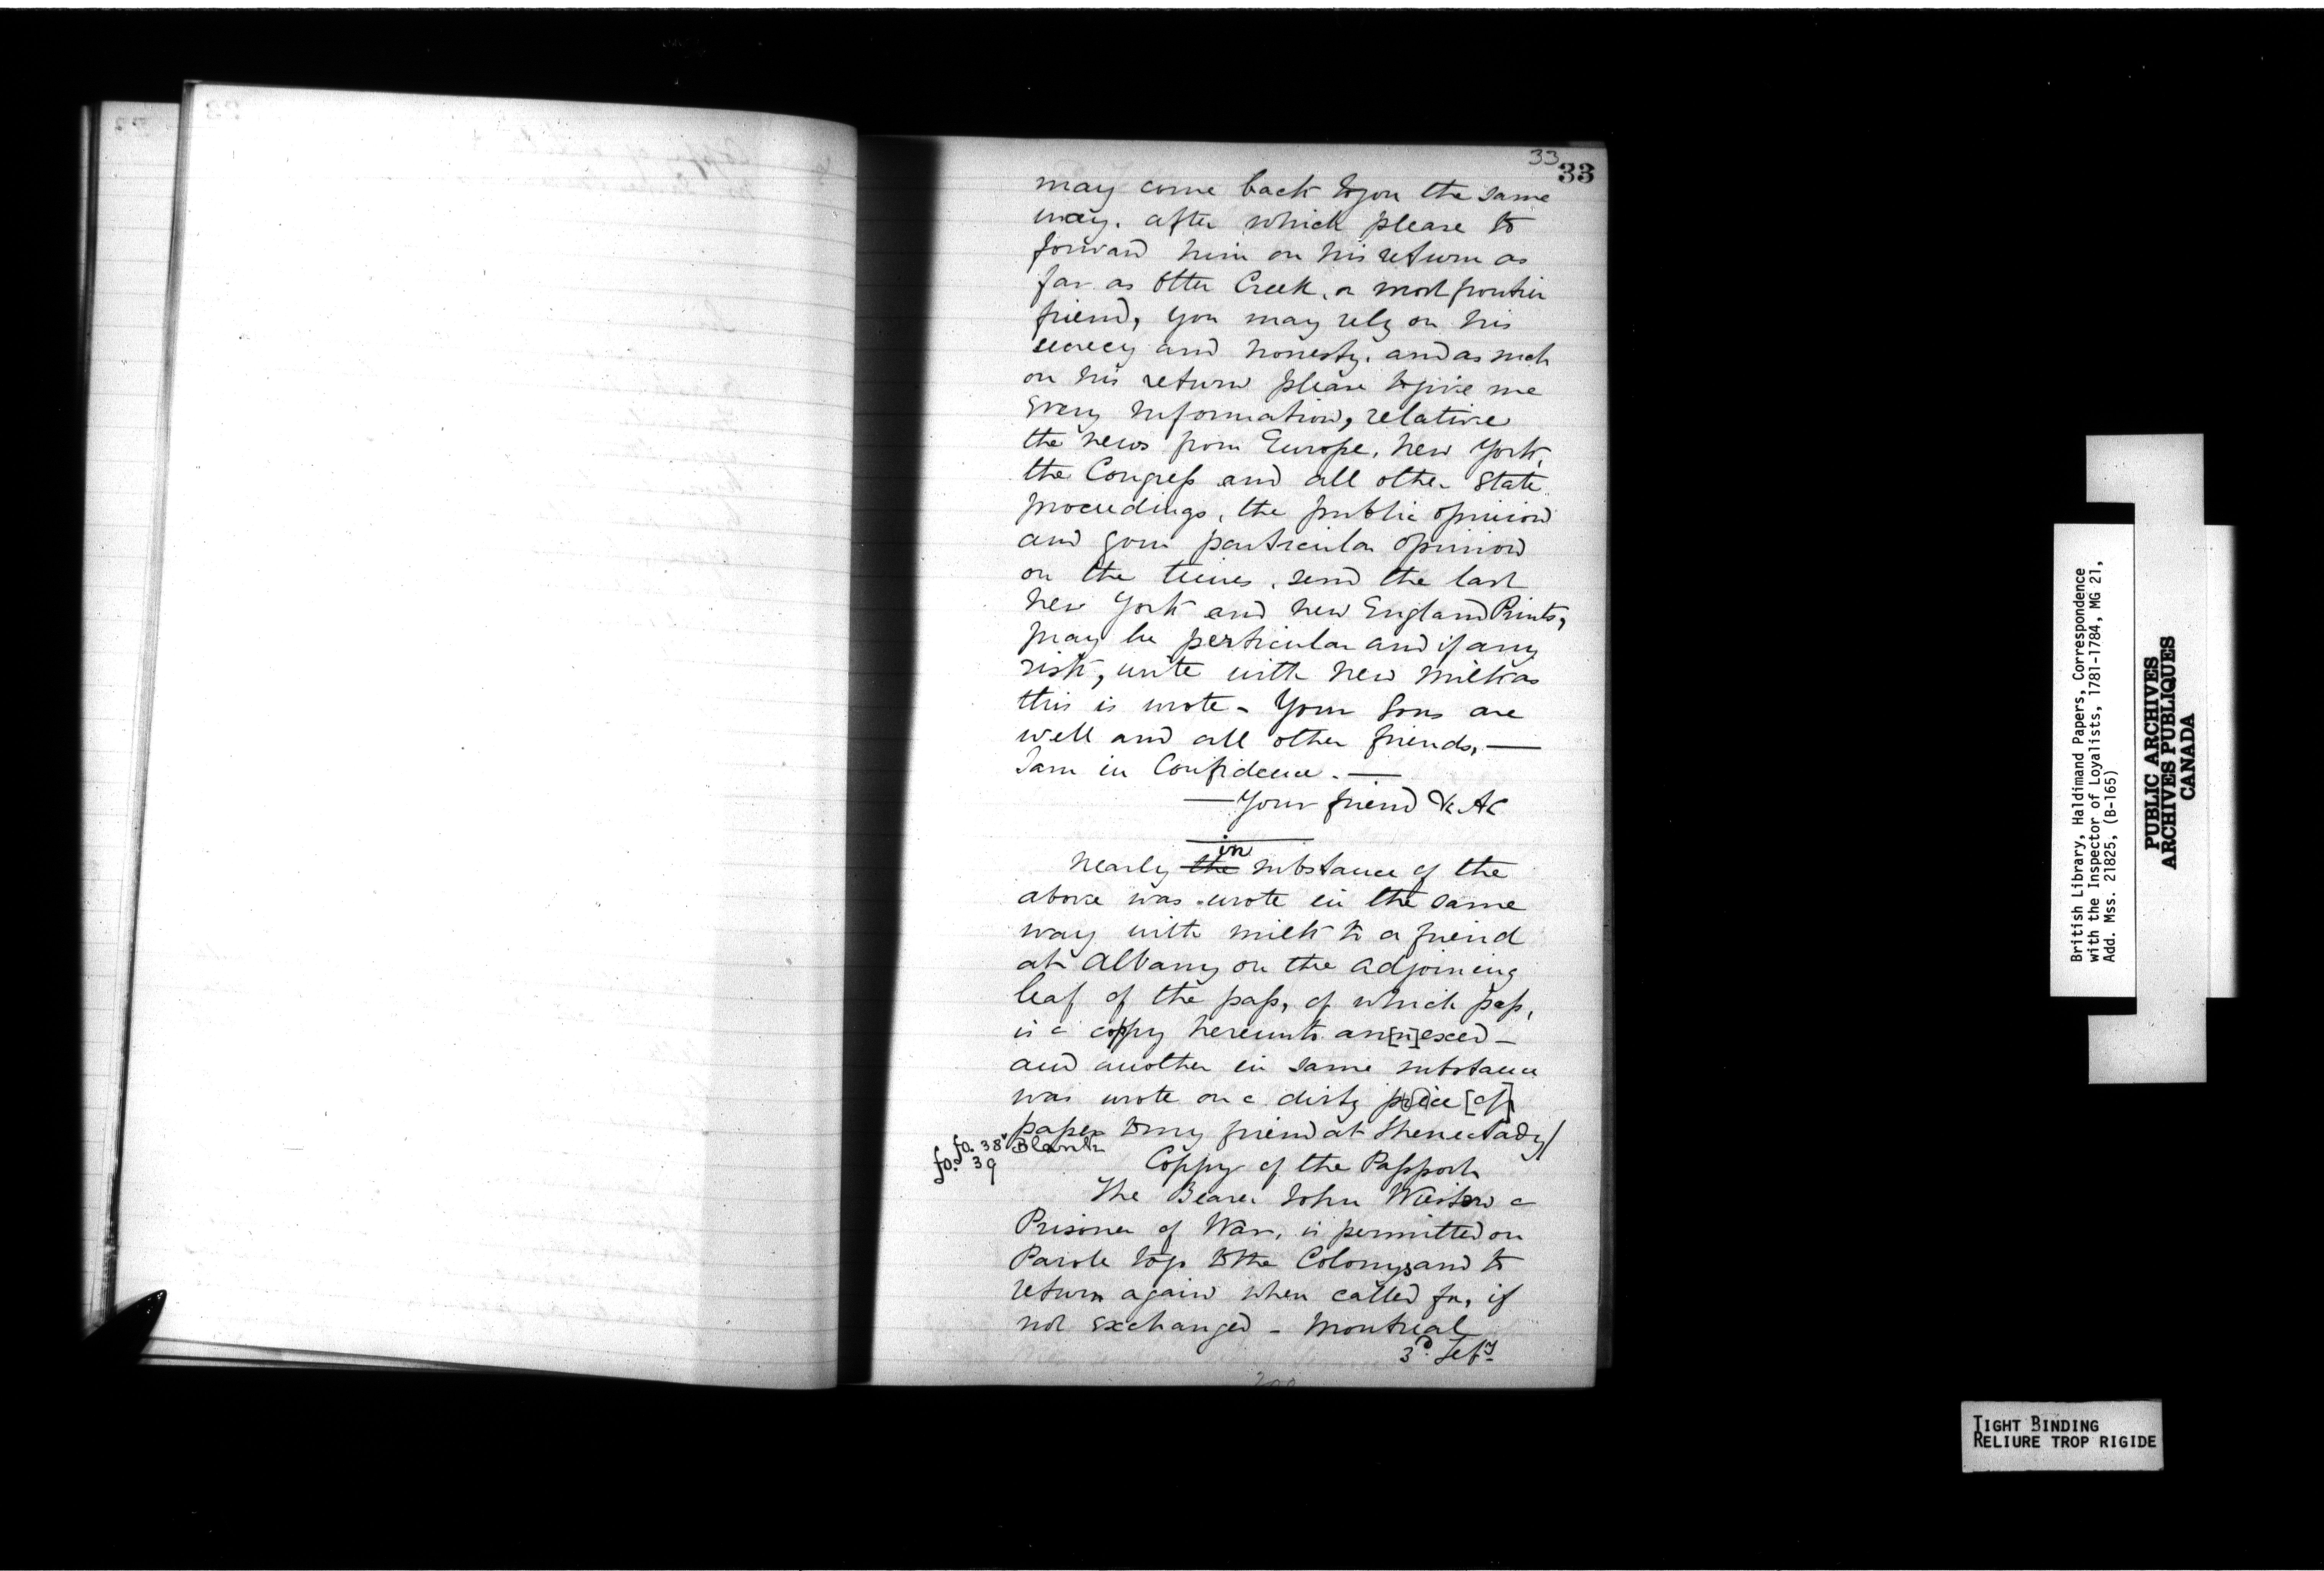 33
33
may come back to you the same
way. after which please to
forward him on his return as
far as Otter Creek, or most frontier
friend, you may rely on his
secrecy and honesty. and as such
on his return please to give me
every information, relative
the news from Europe, New York,
the Congress and all other State
proceedings, the public opinion
and your particular opinion
on the times, send the last
New York and New England Prints,
pray be perticular and if any
risk, write with new milk as
this is wrote - Your Sons are
well and all other friends, —
I am in Confidence. —
— Your friend &c &c
in
Nearly the substance of the
above was wrote in the same
way with milk to a friend
at Albany on the adjoining
leaf of the pass, of which pass,
is a coppy hereunto an[n]exed —
and another in same substance
was wrote on a dirty peice [of]
paper to my friend at Shenectady/
fo. 38v Blank
fo. 39
Coppy of the Passport
The Bearer John a
Prisoner of War, is permitted on
Parole to go to the Colonys and to
return again when called for, if
not exchanged - Montreal
3d. Feby
British Library, Haldimand Papers, Correspondence
with the Inspector of Loyalists, 1781-1784, MG 21,
Add. Mss. 21825, (B-165)
PUBLIC ARCHIVES
ARCHIVES PUBLIQUES
CANADA
TIGHT BINDING
RELIURE TROP RIGIDE